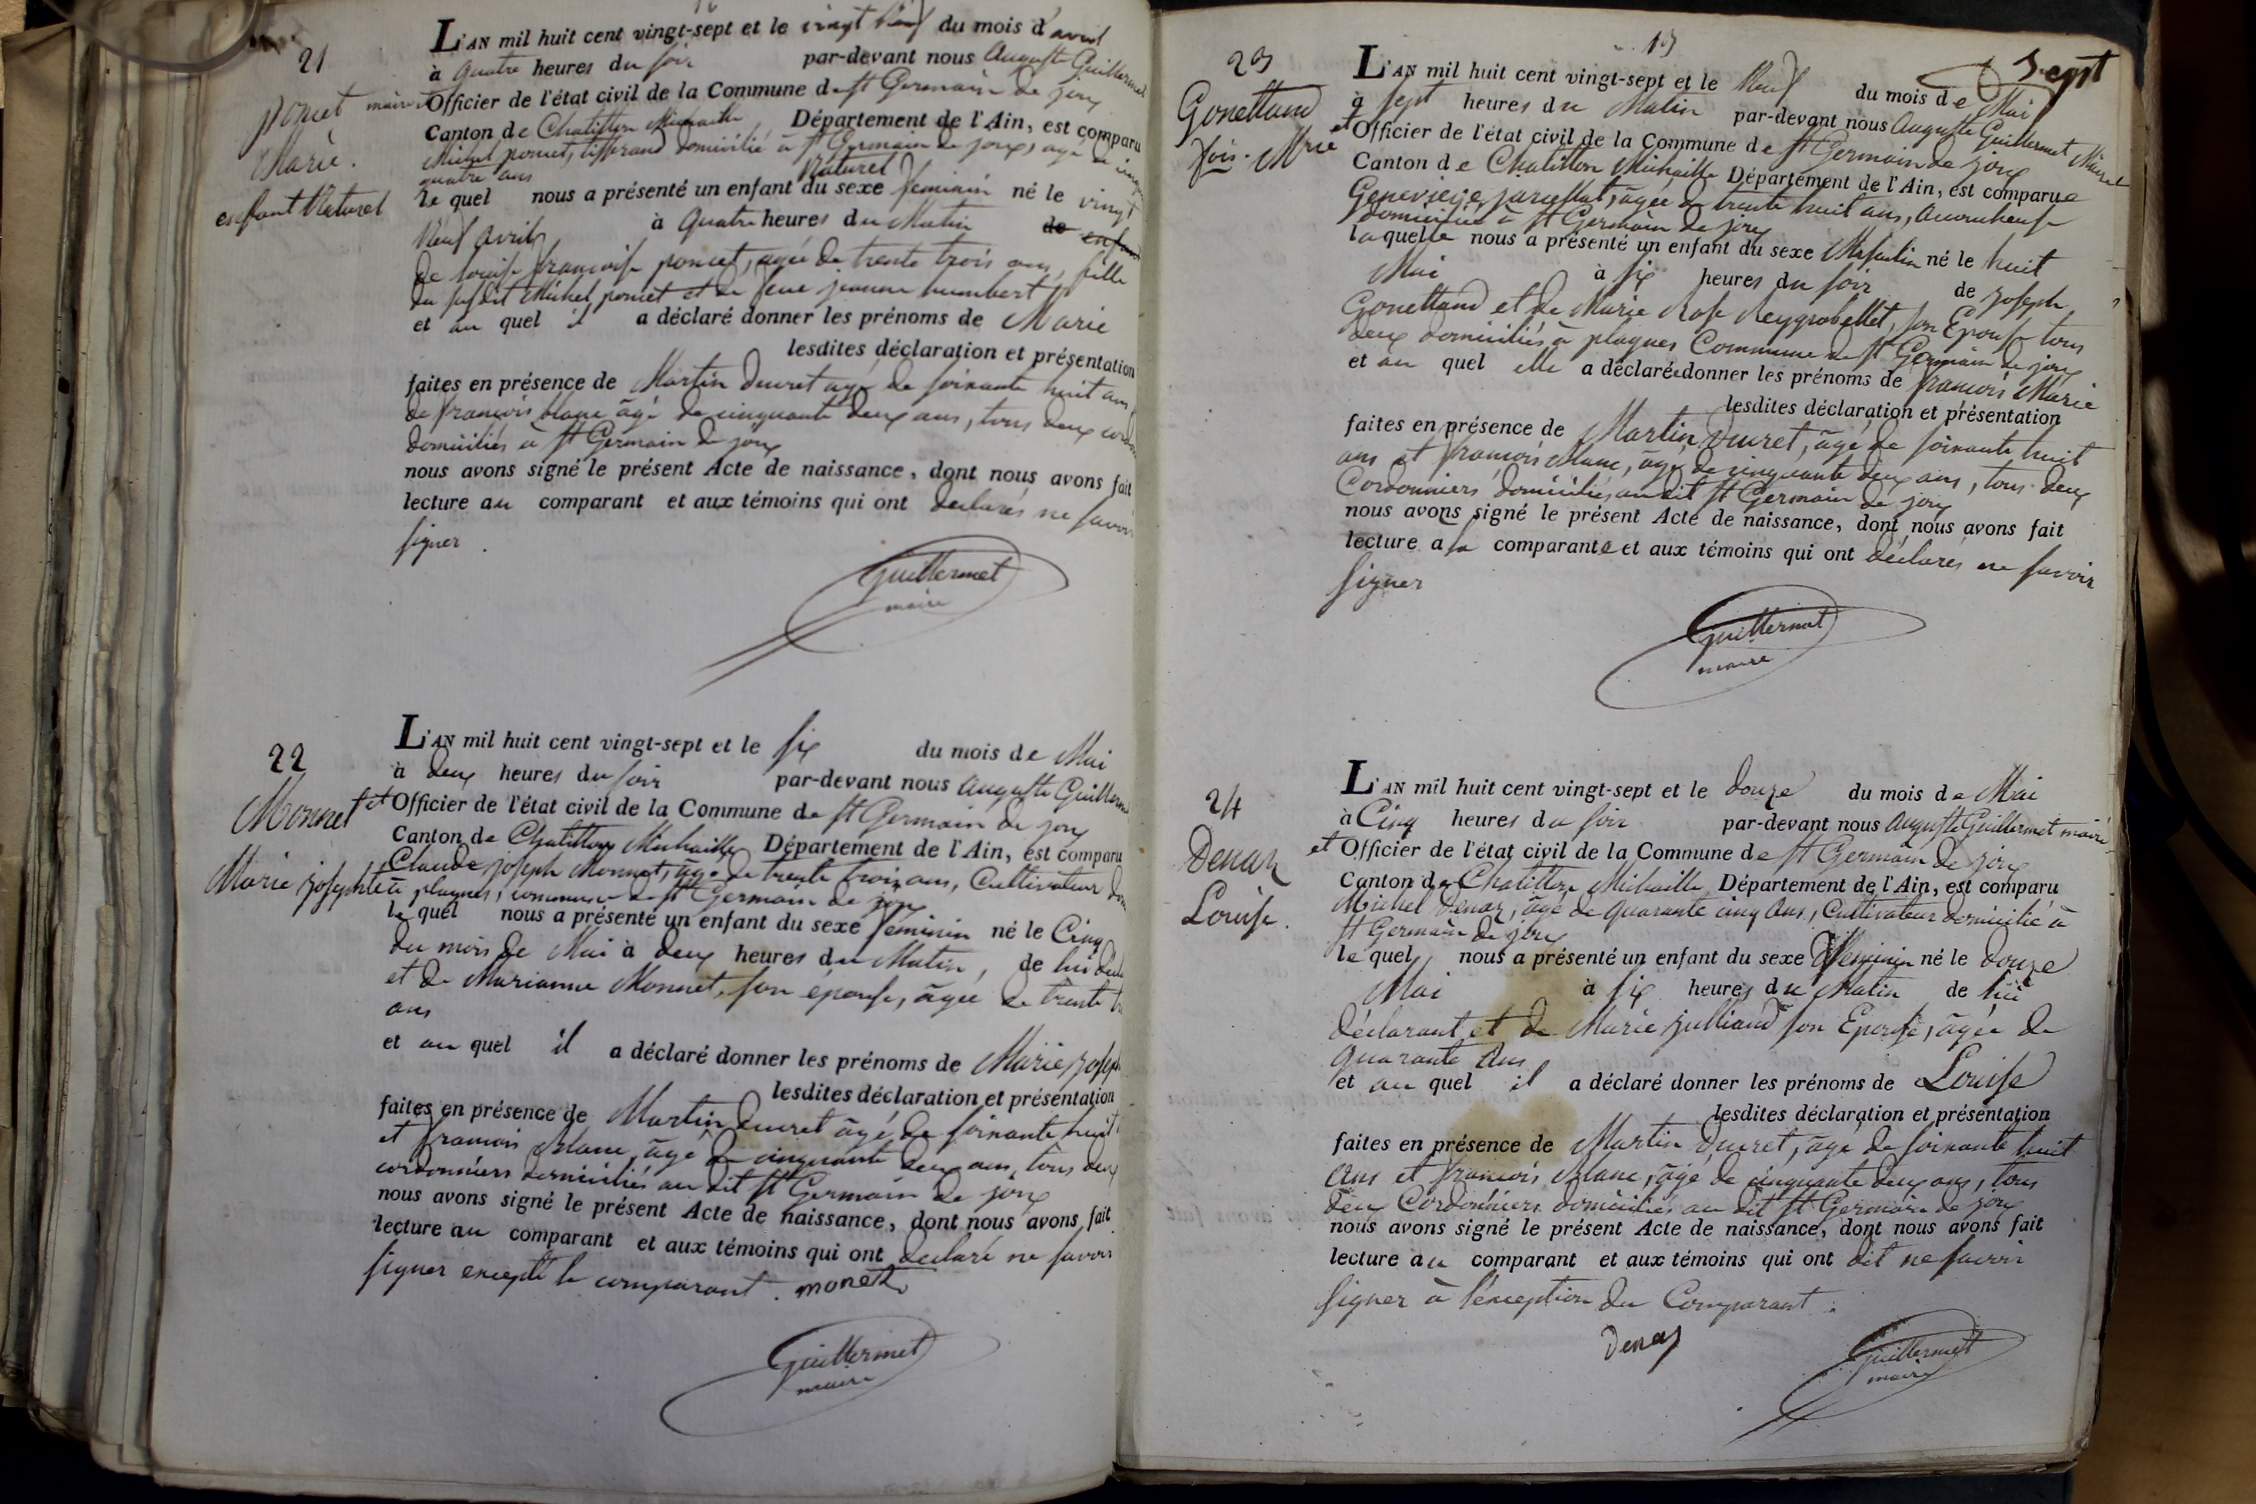 21
poncet
Marie.
enfant Naturel
L'AN mil huit cent vingt-sept et le vingt Neuf du mois d'avril
à quatre heures du soir par-devant nous Auguste Guillermet
maire et Officier de l'état civil de la Commune de St Germain de joux
Canton de Chatillon Michaille Département de l'Ain, est comparu
Michel poncet, tisserand domicilié à St Germain de joux, agé de
quatre ans
le quel nous a présenté un enfant naturel du sexe feminin né le vingt
Neuf avril à quatre heures du Matin de enfant
de louise françoise poncet, agée de trente trois ans, fille
du susdit Michel poncet et de feue jeanne humbert
et au quel il a déclaré donner les prénoms de Marie
lesdites déclaration et présentation
faites en présence de Martin Ducret agé de soixante huit ans,
de françois blanc âgé de cinquante deux ans, tous deux
domiciliés à St Germain de joux
nous avons signé le présent Acte de naissance, dont nous avons fait
lecture au comparant et aux témoins qui ont declarés ne savoir
signer.
Guillermet
maire
22
Monnet
Marie josephte
L'AN mil huit cent vingt-sept et le six du mois de Mai
à deux heures du soir par-devant nous Auguste
et Officier de l'état civil de la Commune de St Germain de joux
Canton de Chatillon Michaille Département de l'Ain, est comparu
Claude joseph Monnet, âgé de trente trois ans, Cultivateur
à plagnes, commune de St Germain de joux
le quel nous a présenté un enfant du sexe feminin né le Cinq
du mois de Mai à deux heures du Matin, de lui
et de Marianne Monnet, son épouse, âgée de trente
ans
et au quel il a déclaré donner les prénoms de Marie
lesdites déclaration et présentation
faites en présence de Martin Ducret âgé de soixante huit
et francois Blanc, âgé de cinquante deux ans, tous deux
cordonniers domiciliés au dit St Germain de joux
nous avons signé le présent Acte de naissance, dont nous avons fait
lecture au comparant et aux témoins qui ont declaré ne savoir
signer excepté le comparant. monet
Guillermet
maire
13
Sept
23
Gonettand
fois. Mrie
L'AN mil huit cent vingt-sept et le Neuf du mois de Mai
à sept heures du Matin par-devant nous Auguste Guillermet Maire
et Officier de l'état civil de la Commune de St Germain de joux
Canton de Chatillon Michaille Département de l'Ain, est comparue
Genevieve, agée de trente huit ans, Accoucheuse
domiciliée à St Germain de joux
laquelle nous a présenté un enfant du sexe Masculin né le huit
Mai à six heures du soir de joseph
Gonettand et de Marie Rose Reygrobellet, son Epouse tous
deux domiciliés à plagnes Commune de St Germain de joux
et au quel elle a déclaré donner les prénoms de francois Marie
lesdites déclaration et présentation
faites en présence de Martin Ducret, âgé de soixante huit
ans et francois Blanc, âgé de cinquante deux ans, tous deux
Cordonniers domiciliés au dit St Germain de joux
nous avons signé le présent Acte de naissance, dont nous avons fait
lecture a la comparante et aux témoins qui ont déclarés ne savoir
signer
Guillermet
maire
24
Denaz
Louise.
L'AN mil huit cent vingt-sept et le douze du mois de Mai
à Cinq heures du soir par-devant nous Auguste Guillermet maire
et Officier de l'état civil de la Commune de St Germain de joux
Canton de Chatillon Michaille Département de l'Ain, est comparu
Michel Denaz, âgé de quarante cinq Ans, Cultivateur domicilié à
St Germain de joux
le quel, nous a présenté un enfant du sexe Feminin né le douze
Mai à six heures du Matin de lui
déclarant et de Marie julliand son Epouse, âgée de
quarante Ans
et au quel il a déclaré donner les prénoms de Louise
lesdites déclaration et présentation
faites en présence de Martin Ducret, âgé de soixante huit
Ans et francois Blanc, âgé de cinquante deux ans, tous
deux Cordonniers domiciliés au dit St Germain de joux
nous avons signé le présent Acte de naissance, dont nous avons fait
lecture au comparant et aux témoins qui ont dit ne savoir
signer à l'exception du Comparant.
Denaz
Guillermet
maire